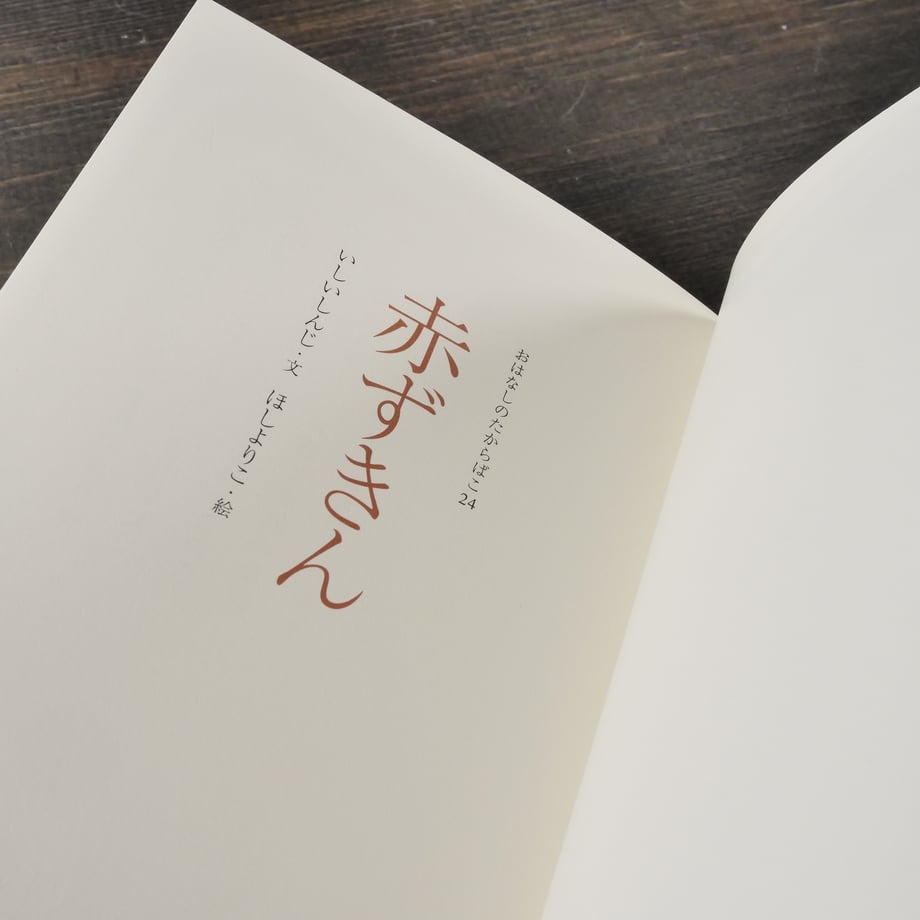 おはなしのたからばこ 24
赤ずきん
いしいしんじ・文 ほしよりこ・絵